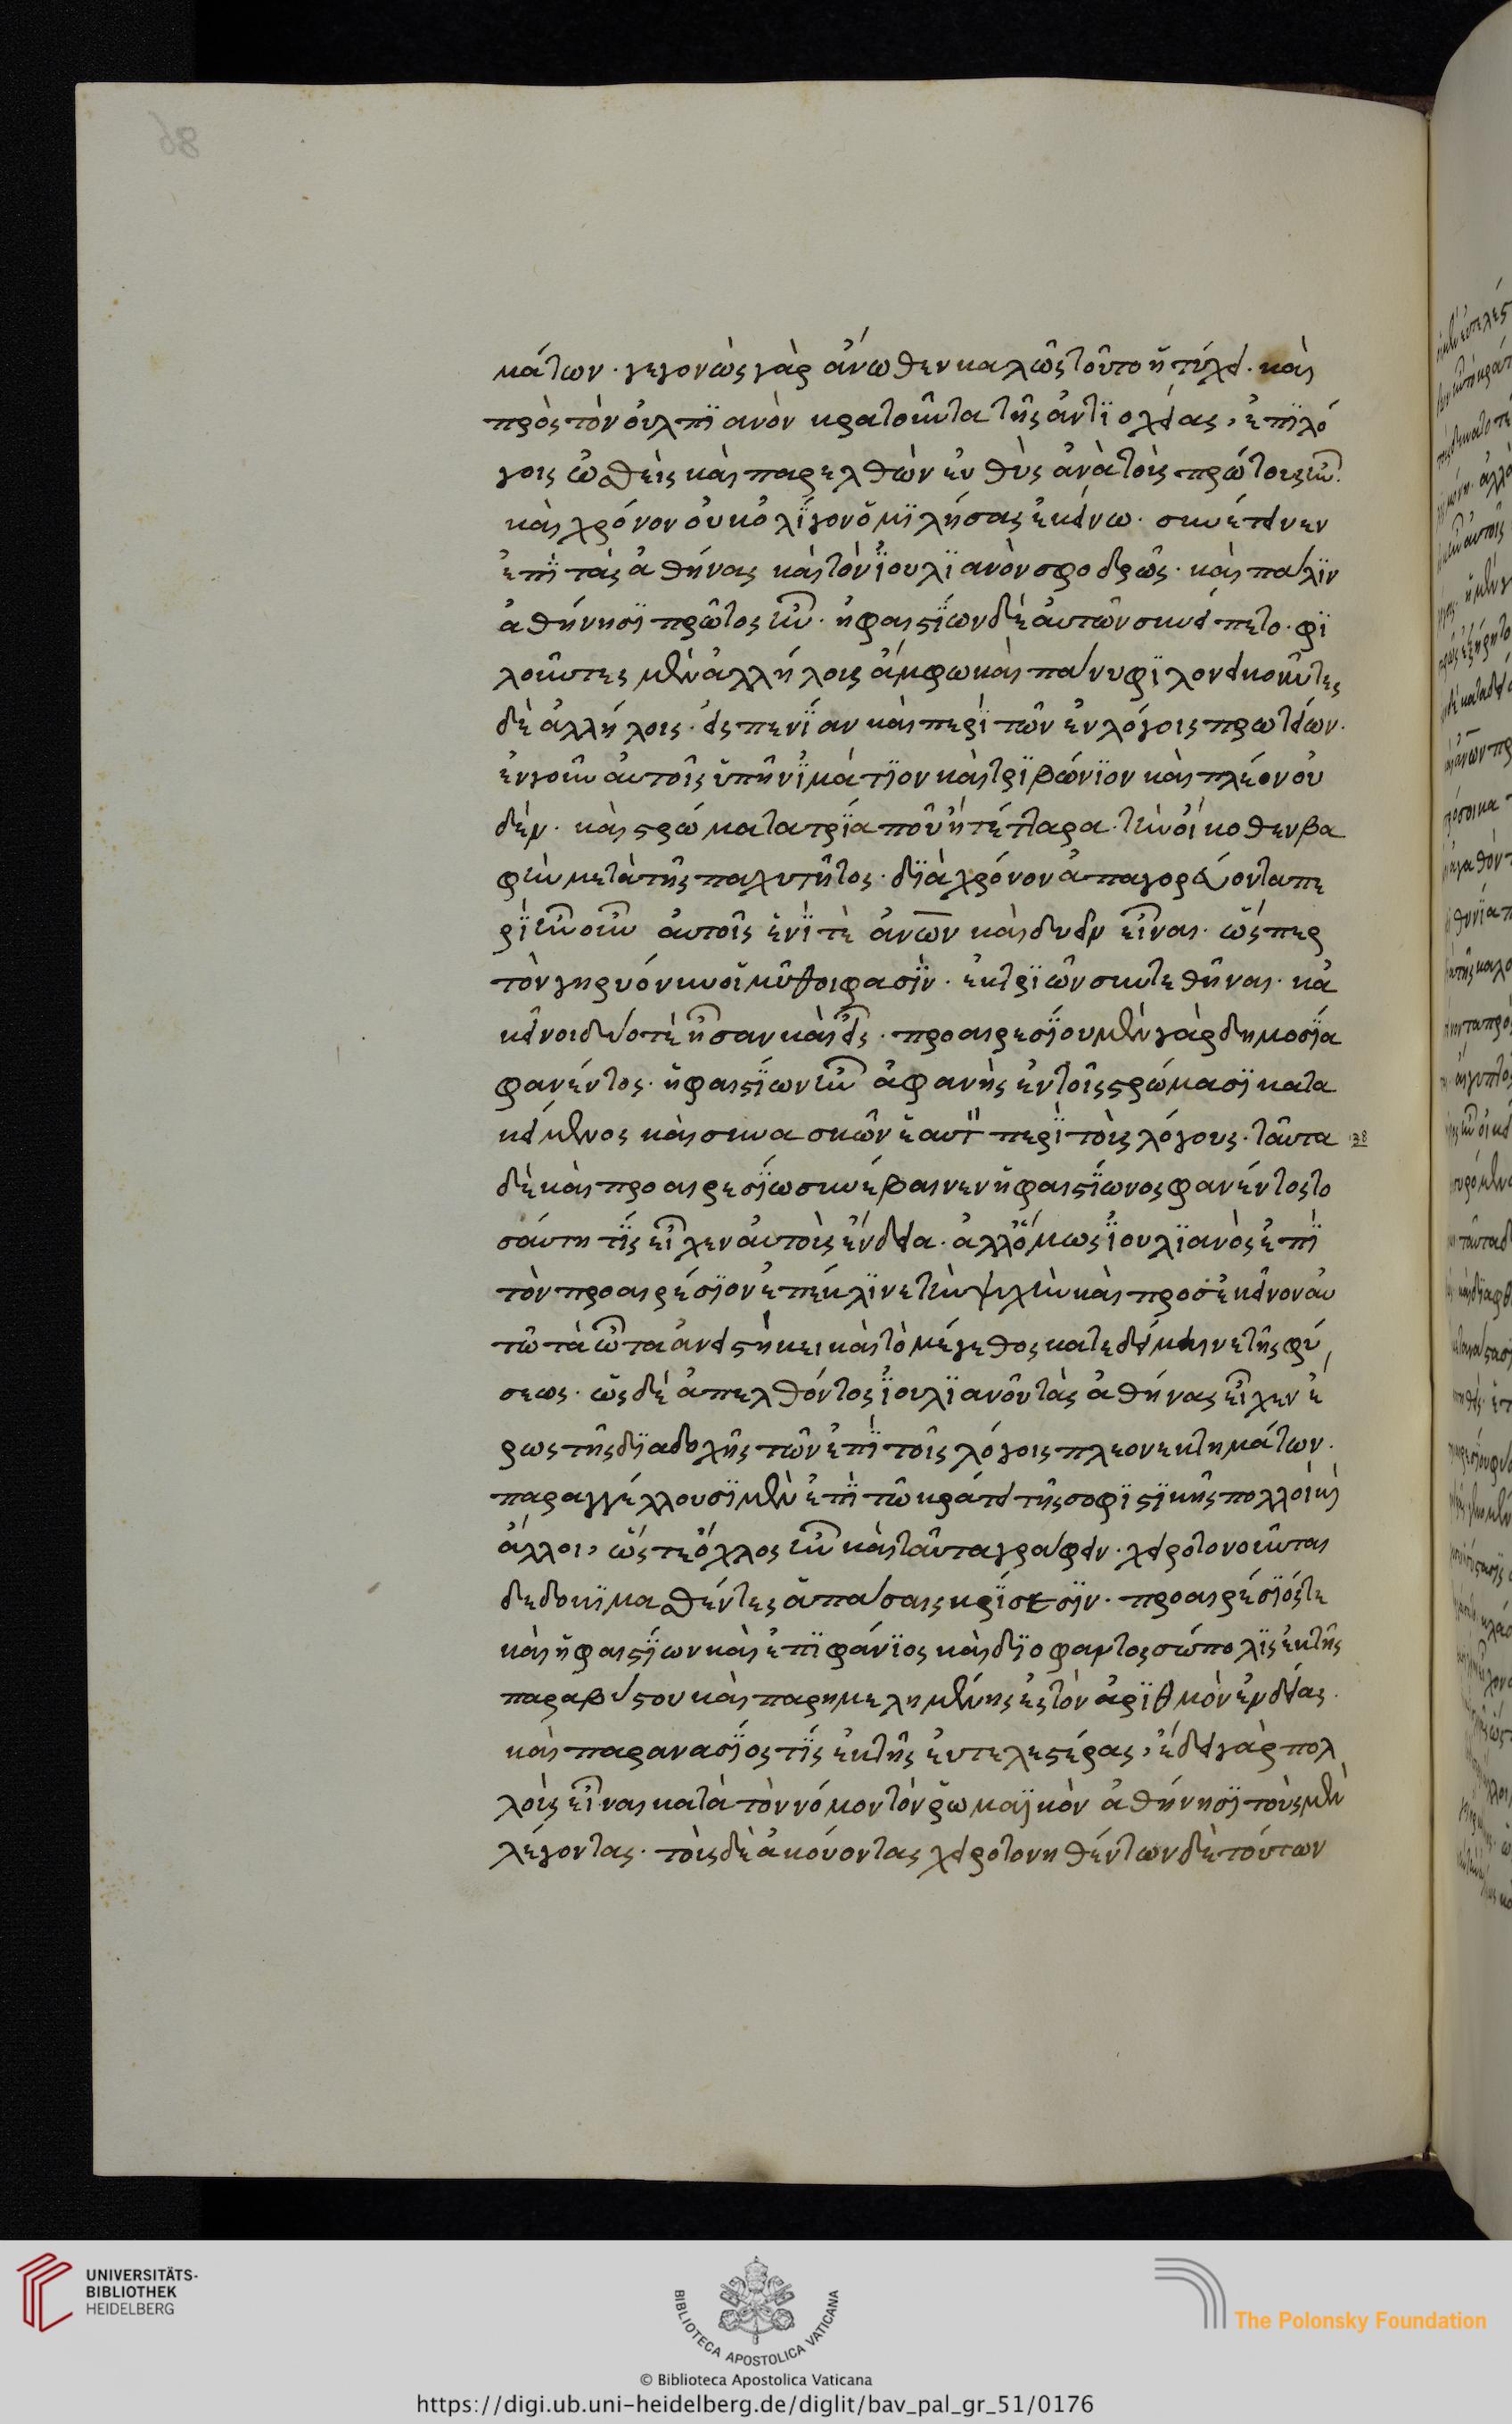 μάτων· γεγονὼς γὰρ ἄνωθεν καλῶς τοῦτο ἠτύχει· καὶ
πρὸς τὸν οὐλπϊανὸν κρατοῦντα τῆς ἀντϊοχείας, ἐπῒ λό
γοις ὠσθεὶς καὶ παρελθὼν εὐθὺς ἀνὰ τοὺς πρώτους ἦν.
καὶ χρόνον οὐκ ὀλΐγον ὁμϊλήσας ἐκείνω· συνέτεινεν
ἐπῒ τὰς ἀθήνας καὶ τὸν ϊουλϊανὸν σφοδρῶς· καὶ πάλϊν
ἀθήνησϊ πρῶτος ἦν· ἡφαιστΐων δὲ αὐτῶν συνείπετο· φϊ
λοῦντες μὲν ἀλλήλοις ἄμφω καὶ πάνυ φϊλονεικοῦντες
δὲ ἀλλήλοις· εἰς πενΐαν καὶ περῒ τῶν ἐν λόγοις πρωτείων.
ἓν γοῦν αὐτοῖς ὑπῆν ϊμάτϊον καὶ τρϊβώνϊον καὶ πλέον οὐ
δέν· καὶ στρώματα τρΐα που ἢ τέτταρα· τὴν οἴκοθεν βα
φὴν μετὰ τῆς παχυτῆτος· δϊὰ χρόνον ἀπαγορεύοντα πε
ρϊῆν οὖν αὐτοῖς ἑνΐ τὲ ἀνων καὶ δυεῖν εἶναι· ὥσπερ
τὸν γηρυόνην οἱ μῦθοι φασῒν· ἐκ τρϊῶν συντεθῆναι· κἀ
κεῖνοι δύο τὲ ἦσαν καὶ εἷς· προαιρεσΐου μὲν γὰρ δημοσΐα
φανέντος· ἡφαιστΐων ἦν ἀφανὴς ἐν τοῖς στρώμασϊ κατα
κείμενος καὶ συνασκῶν ἑαυτ περῒ τοὺς λόγους· ταῦτα 38
δὲ καὶ προαιρεσΐω συνέβαινεν ἡφαιστΐωνος φανέντος το
σαύτη τΐς εἶχεν αὐτοὺς ἔνδεια· ἀλλ' ὅμως ϊουλϊανὸς ἐπῒ
τὸν προαιρέσϊον ἐπέκλϊνε τὴν ψυχὴν καὶ προς ἐκεῖνον αὐ
τῶ τὰ ὦτα ἀνειστήκει καὶ τὸ μέγεθος κατεδείμαινε τῆς φύ
σεως· ὡς δὲ ἀπελθόντος ϊουλϊανοῦ τὰς ἀθήνας εἶχεν ἔ
ρως τῆς δϊαδοχῆς τῶν ἐπῒ τοῖς λόγοις πλεονεκτημάτων.
παραγγέλλουσϊ μὲν ἐπῒ τῶ κράτει τῆς σοφϊστϊκῆς πολλοὶ κὶ
ἄλλοι, ὥστε ὄχλος ἦν καὶ ταῦτα γράφειν· χειροτονοῦνται
δεδοκϊμασθέντες ἁπάσαις κρΐσεσϊν· προαιρέσϊός τε
καὶ ἡφαιστΐων καὶ ἐπϊφάνϊος καὶ δϊόφαντος σώπολϊς ἐκ τῆς
παραβύστου καὶ παρημελημένης ἐς τὸν ἀρϊθμὸν ἐνδείας.
καὶ παρανασϊος τΐς ἐκ τῆς εὐτελεστέρας, ἔδει γὰρ πολ
λοὺς εἶναι κατὰ τὸν νόμον τὸν ῥωμαϊκὸν ἀθήνησϊ τοὺς μὲν
λέγοντας· τοὺς δὲ ἀκούοντας χειροτονηθέντων δὲ τούτων
UNIVERSITÄTS-
BIBLIOTHEK
HEIDELBERG
BIBLIOTECA APOSTOLICA VATICANA
The Polonsky Foundation
© Biblioteca Apostolica Vaticana
https://digi.ub.uni-heidelberg.de/diglit/bav_pal_gr_51/0176